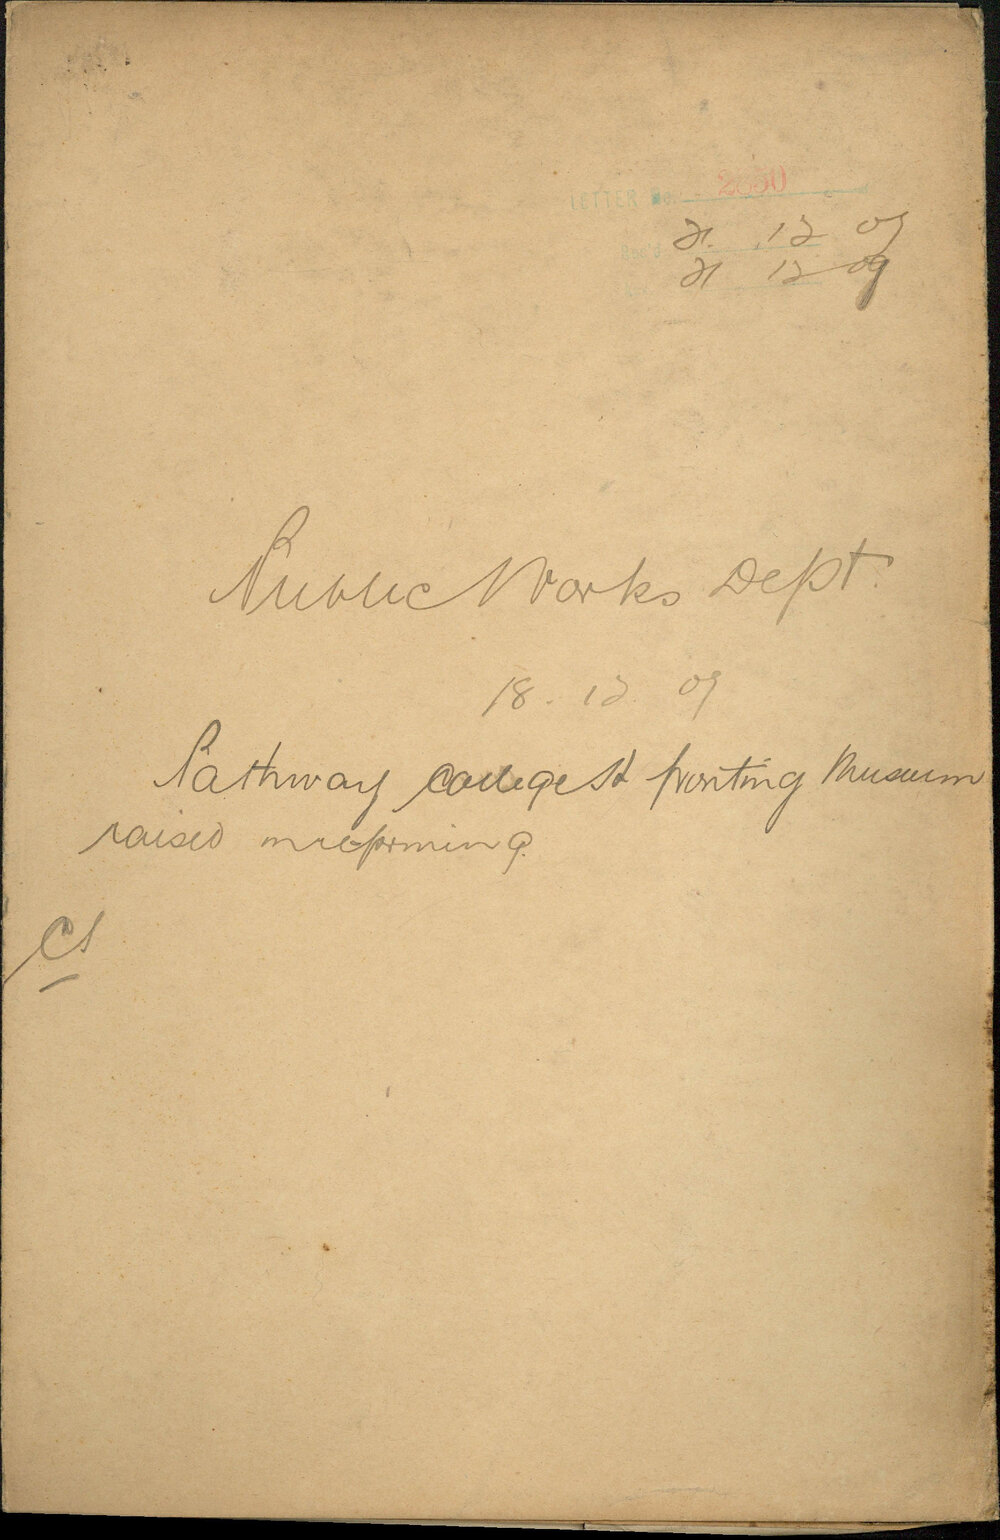 LETTER No. 2650
21. 12 09
21 12 09
Public Works Dept.
18. 12 09
Pathway College St fronting Museum
raised in reforming.
CS